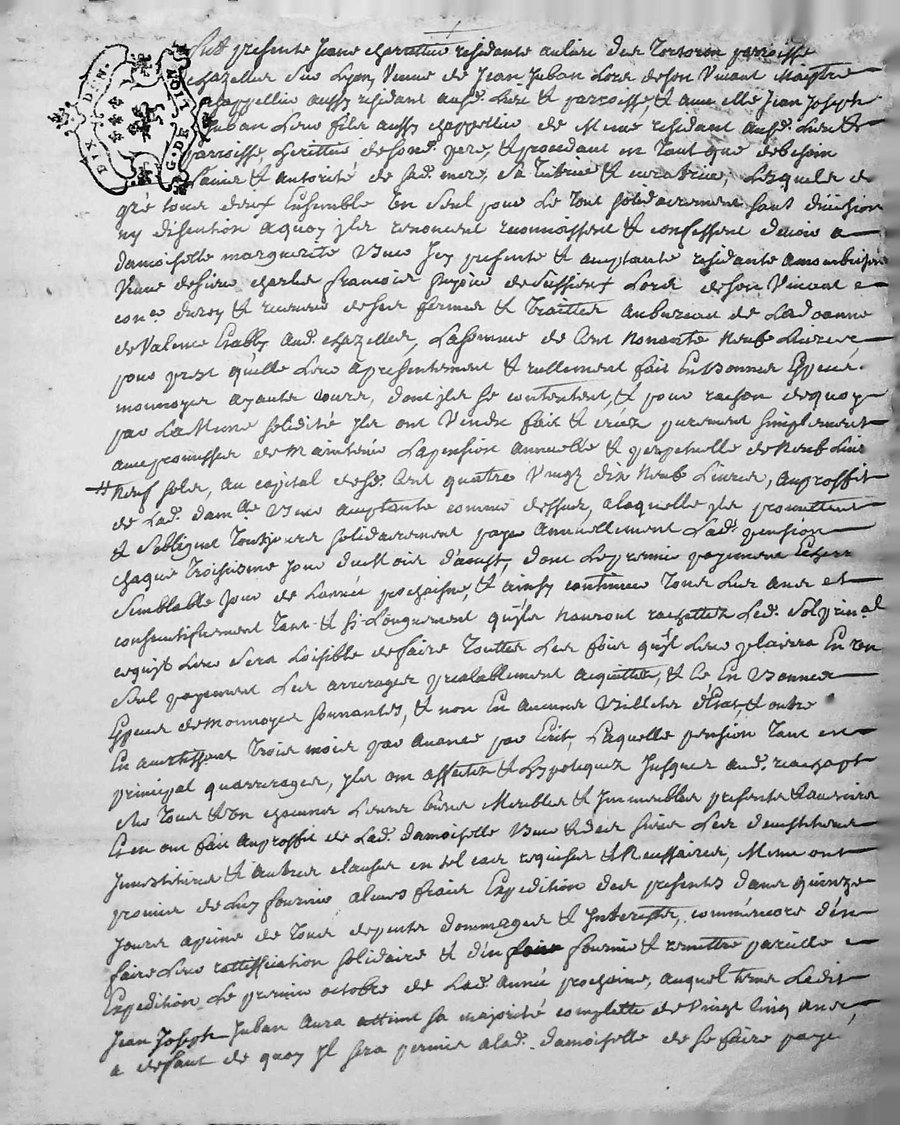 DIX DEN. G. DE NOIT
fut presente Jeane charrettier residante au lieu des Tortorin parroisse
chazelles sur Lyon, Veuve de Jean Juban Lors de son Vivant Maistre
chappellier aussy residant aud. Lieu & parroisse, & avec elle Jean Joseph
Juban Leur fils aussy chappellier, de Meme residant aud. Lieu &
parroisse, heritier de sond. pere, & procedant en Tant que de besoin
sauce & autorité de sad. mere, sa Tutrice & curatrice, Lesquels de
gré tous deux Ensemble un seul pour Le Tout solidairement sant division
ny discution aquoy jls renoncent reconnoissent & confessent devoir a
damoiselle marguerite Buer Jcy presente & acceptante residante a montbrison
Veuve de sieur charles francois de Lors de son Vivant
con.er du roy & receveur de ses fermes & Traittes au bureau de La doanne
de Valence Etably aud. chazelles, La somme de Cent Nonante Neuf Livres,
pour prest quelle Leur a presentement & reellement fait En bonnes Especes
monnoyes ayants cours, dont jls se contentent, & pour raison de quoy
par La Meme solidité jls ont Vendu fait & créez purement simplement
avec promesse de Maintenir La pension annuelle & perpetuelle de Neuf Livres
Neuf sols, au capital desd. Cent quatre Vingt dix Neuf Livres, au proffit
de Lad. dam.lle Buer acceptante comme dessus, a laquelle jls promettent
& sobligent Toutjours solidairement payer annuellement Lad. pension
chaque Troisieme jour du Mois d'aoust, dont Le premier payement Echerra
semblable jour de L'année prochaine, & ainsy continuer Tous Les ans et
consecutifvement Tant & si Longuement qu'ils N'auront rachettez Led. sol principal
ce quil Leur sera Loisible de faire Touttes Les fois qu'jl Leur plairra En un
seul payement Les arrerages prealablement acquittez, & Ce En Bonnes
Especes de Monnoyes sonnantes, & non En aucuns Billets d'Etat, & outre
En avertissant Trois mois par avance par Ecrit, Laquelle pension Tant en
principal qu'arrerages, jls ont affectez & hypotequez Jusques aud. reachapt
sur Tous & Un chacuns Leurs biens Meubles & Jmmeubles presents & avenirs
& en ont fait au proffit de Lad. damoiselle Buer & des siens Les devestitures
Jnvestitures & autres clauses en tel cas requises & Necessaires, Meme ont
promis de Luy fournir a leurs frais Expedition des presents dans quinze
Jours a peine de Tous depents dommages & Jnterests, comm'encore d'en
faire Leur rattiffication solidaire & d'en fournir & remettre pareille
Expedition Le premier octobre de Lad. année prochaine, auquel tems Ledit
Jean Joseph Juban aura attint sa majorité complette de Vingt Cinq ans
a deffaut de quoy jl sera permis a lad. damoiselle de se faire payer,